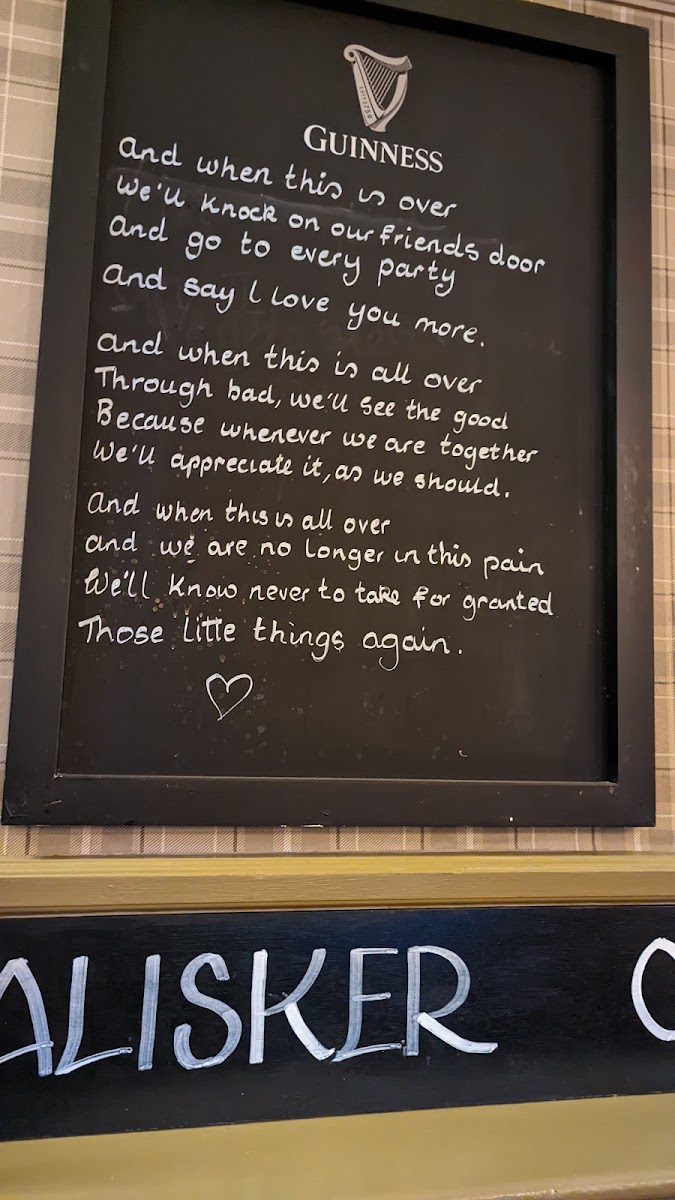 GUINNESS
And when this is over
We'll knock on our friends door
And go to every party
And say I love you more.
And when this is all over
Through bad, we'll see the good
Because whenever we are together
We'll appreciate it, as we should.
And when this is all over
and we are no longer in this pain
We'll know never to take for granted
Those little things again.
ALISKER O